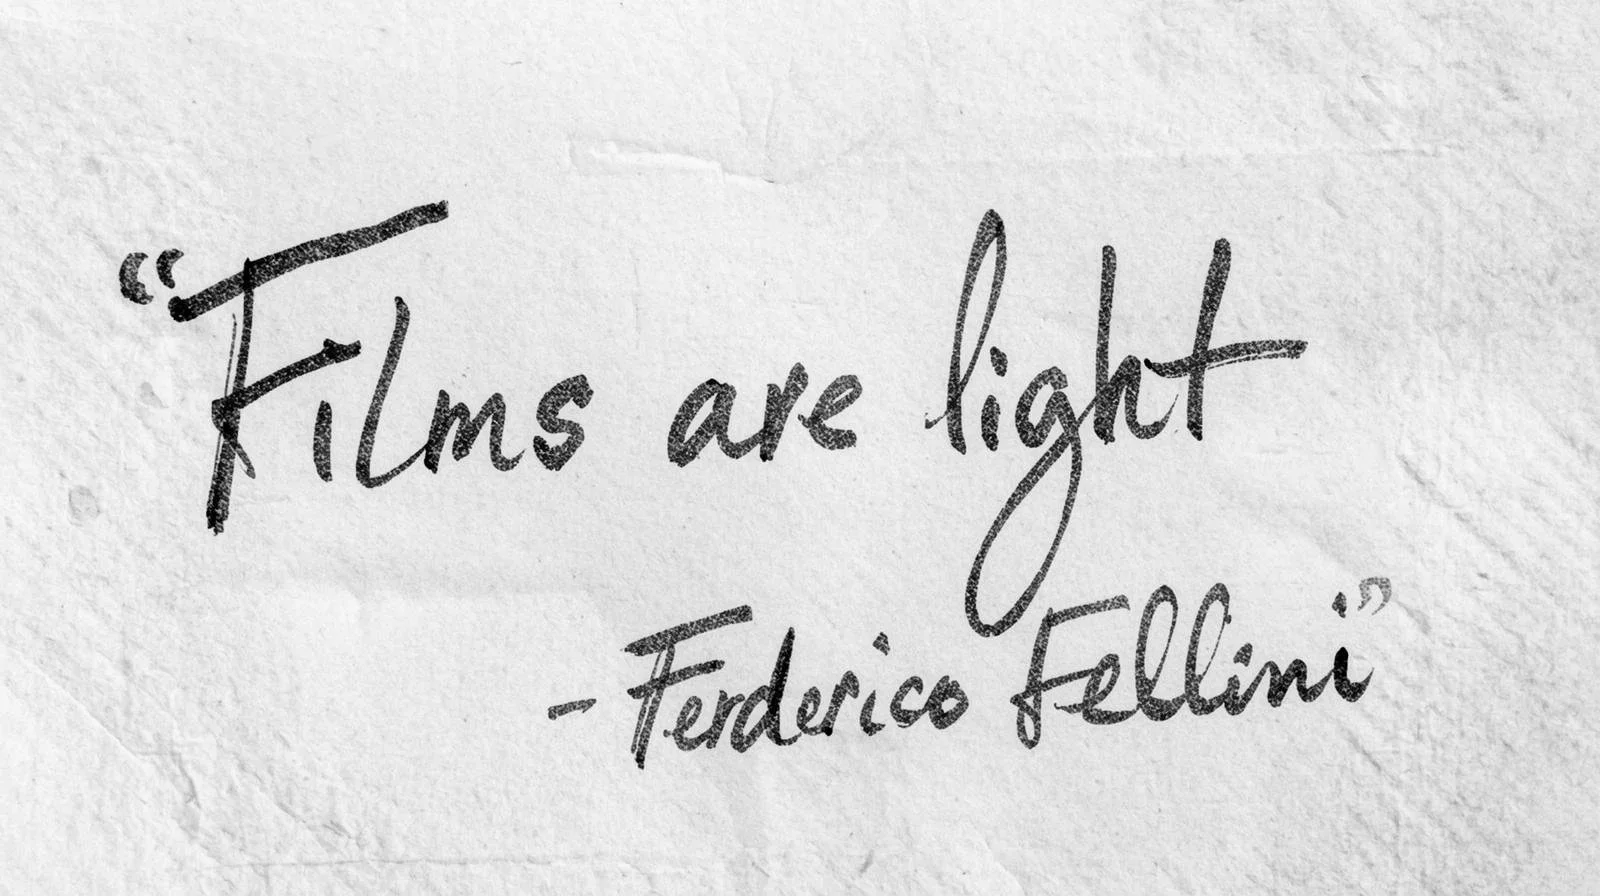 “Films are light
- Ferderico Fellini”